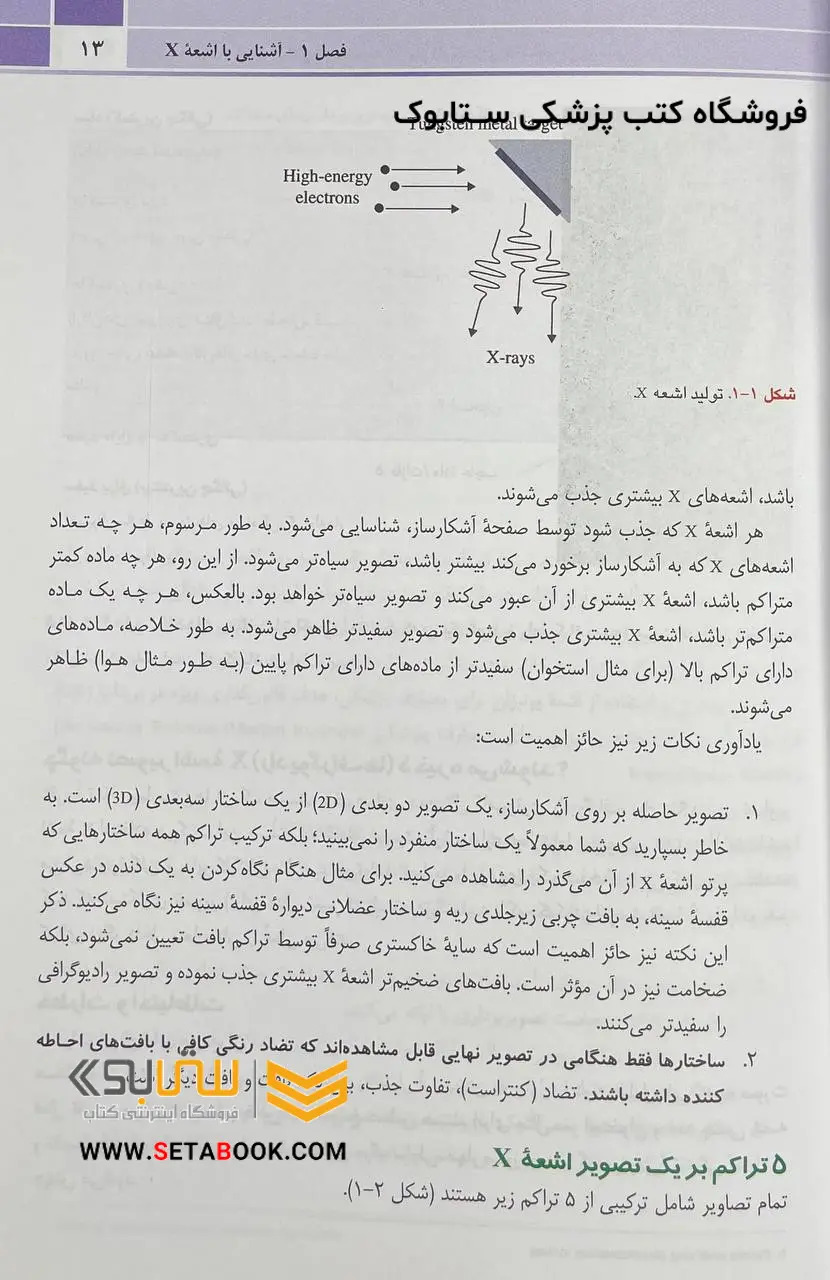 ۱۳
فصل ۱ - آشنایی با اشعهٔ X
فروشگاه کتب پزشکی ستابوک
Tungsten metal target
High-energy
electrons
X-rays
شکل ۱-۱. تولید اشعه X.
باشد، اشعه‌های X بیشتری جذب می‌شوند.
هر اشعهٔ X که جذب شود توسط صفحهٔ آشکارساز، شناسایی می‌شود. به طور مرسوم، هر چه تعداد
اشعه‌های X که به آشکارساز برخورد می‌کند بیشتر باشد، تصویر سیاه‌تر می‌شود. از این رو، هر چه ماده کمتر
متراکم باشد، اشعهٔ X بیشتری از آن عبور می‌کند و تصویر سیاه‌تر خواهد بود. بالعکس، هر چه یک ماده
متراکم‌تر باشد، اشعهٔ X بیشتری جذب می‌شود و تصویر سفیدتر ظاهر می‌شود. به طور خلاصه، ماده‌های
دارای تراکم بالا (برای مثال استخوان) سفیدتر از ماده‌های دارای تراکم پایین (به طور مثال هوا) ظاهر
می‌شوند.
یادآوری نکات زیر نیز حائز اهمیت است:
۱. تصویر حاصله بر روی آشکارساز، یک تصویر دو بعدی (2D) از یک ساختار سه‌بعدی (3D) است. به
خاطر بسپارید که شما معمولاً یک ساختار منفرد را نمی‌بینید؛ بلکه ترکیب تراکم همه ساختارهایی که
پرتو اشعهٔ X از آن می‌گذرد را مشاهده می‌کنید. برای مثال هنگام نگاه‌کردن به یک دنده در عکس
قفسهٔ سینه، به بافت چربی زیرجلدی ریه و ساختار عضلانی دیوارهٔ قفسهٔ سینه نیز نگاه می‌کنید. ذکر
این نکته نیز حائز اهمیت است که سایهٔ خاکستری صرفاً توسط تراکم بافت تعیین نمی‌شود، بلکه
ضخامت نیز در آن مؤثر است. بافت‌های ضخیم‌تر اشعهٔ X بیشتری جذب نموده و تصویر رادیوگرافی
را سفیدتر می‌کنند.
۲. ساختارها فقط هنگامی در تصویر نهایی قابل مشاهده‌اند که تضاد رنگی کافی با بافت‌های احاطه
کننده داشته باشند. تضاد (کنتراست)، تفاوت جذب، بین یک بافت و بافت دیگر است.
ستابوک
فروشگاه اینترنتی کتاب
WWW.SETABOOK.COM
۵ تراکم بر یک تصویر اشعهٔ X
تمام تصاویر شامل ترکیبی از ۵ تراکم زیر هستند (شکل ۲-۱).